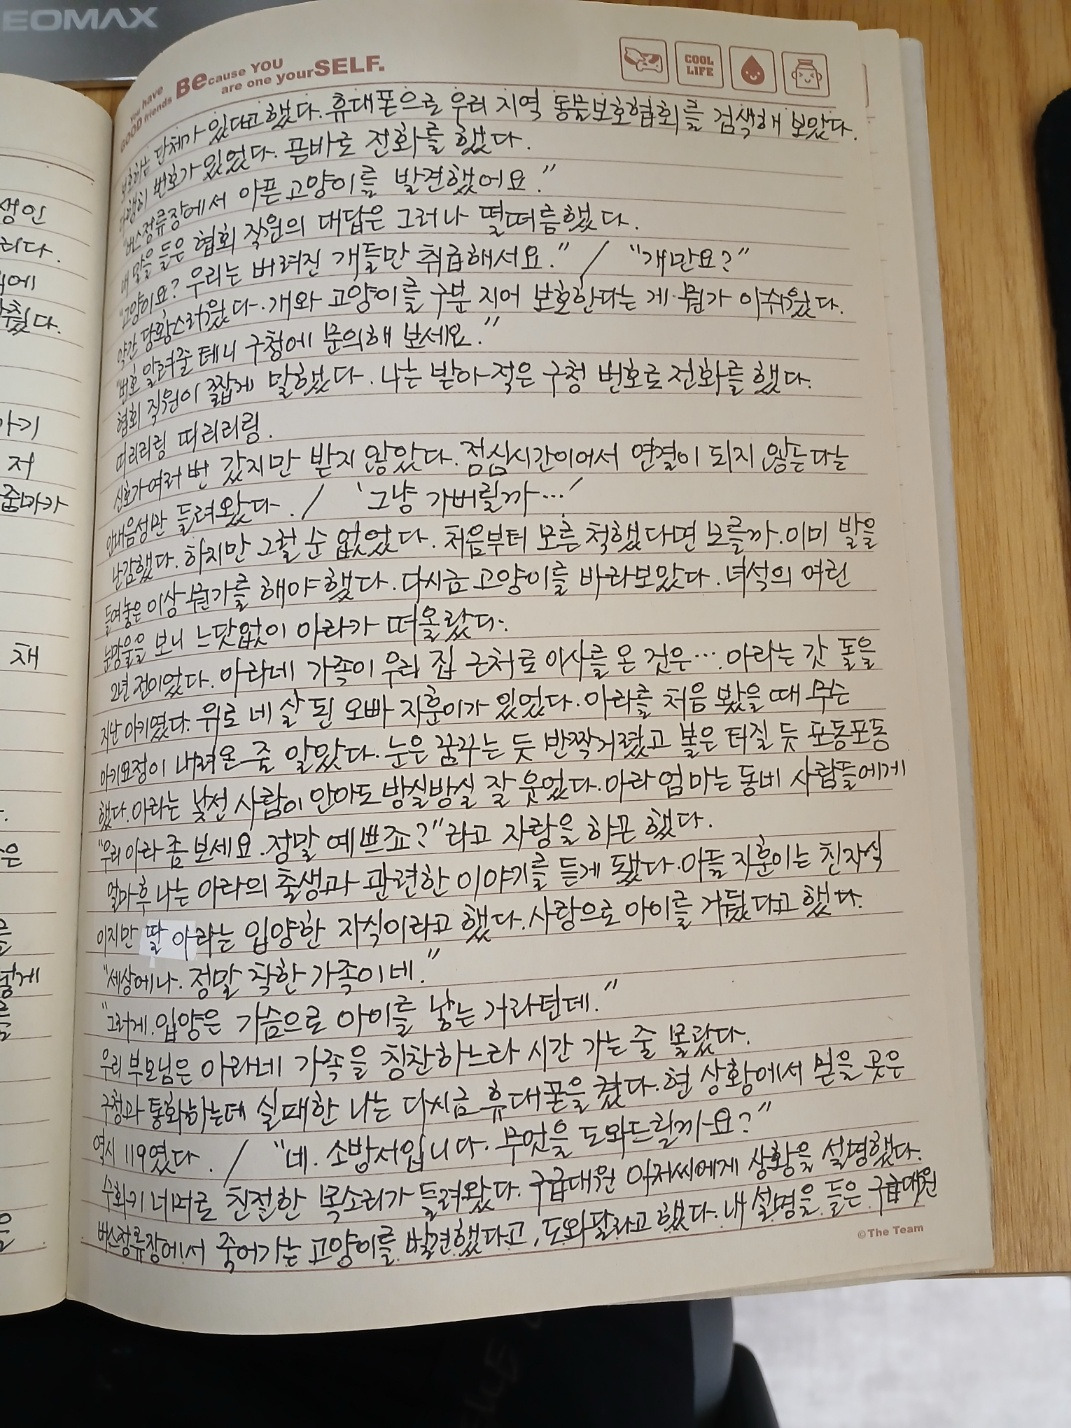 EOMAX
You have GOOD friends BEcause YOU are one yourSELF.
COOL LIFE
보호하는 단체가 있다고 했다. 휴대폰으로 우리 지역 동물보호협회를 검색해 보았다.
다행히 번호가 있었다. 곧바로 전화를 했다.
"버스정류장에서 아픈 고양이를 발견했어요."
내 말을 들은 협회 직원의 대답은 그러나 떨떠름했다.
"고양이요? 우리는 버려진 개들만 취급해서요." / "개만요?"
약간 당황스러웠다. 개와 고양이를 구분 지어 보호한다는 게 뭔가 아쉬웠다.
"번호 알려줄 테니 구청에 문의해 보세요."
협회 직원이 짧게 말했다. 나는 받아 적은 구청 번호로 전화를 했다.
띠리리링 띠리리링.
신호가 여러 번 갔지만 받지 않았다. 점심시간이어서 연결이 되지 않는다는
안내음성만 들려왔다. / '그냥 가버릴까…'
난감했다. 하지만 그럴 순 없었다. 처음부터 모른 척했다면 모를까. 이미 발을
들여놓은 이상 뭔가를 해야 했다. 다시금 고양이를 바라보았다. 녀석의 여린
눈망울을 보니 느닷없이 아라가 떠올랐다.
2년 전이었다. 아라네 가족이 우리 집 근처로 이사를 온 것은…. 아라는 갓 돌을
지난 아기였다. 위로 네 살 된 오빠 지훈이가 있었다. 아라를 처음 봤을 때 무슨
아기요정이 내려온 줄 알았다. 눈은 꿈꾸는 듯 반짝거렸고 볼은 터질 듯 포동포동
했다. 아라는 낯선 사람이 안아도 방실방실 잘 웃었다. 아라 엄마는 동네 사람들에게
"우리 아라 좀 보세요. 정말 예쁘죠?"라고 자랑을 하곤 했다.
얼마 후 나는 아라의 출생과 관련한 이야기를 듣게 됐다. 아들 지훈이는 친자식
이지만 딸 아라는 입양한 자식이라고 했다. 사랑으로 아이를 거뒀다고 했다.
"세상에나. 정말 착한 가족이네."
"그러게. 입양은 가슴으로 아이를 낳는 거라던데."
우리 부모님은 아라네 가족을 칭찬하느라 시간 가는 줄 몰랐다.
구청과 통화하는데 실패한 나는 다시금 휴대폰을 켰다. 현 상황에서 믿을 곳은
역시 119였다. / "네. 소방서입니다. 무엇을 도와드릴까요?"
수화기 너머로 친절한 목소리가 들려왔다. 구급대원 아저씨에게 상황을 설명했다.
버스정류장에서 죽어가는 고양이를 발견했다고, 도와달라고 했다. 내 설명을 들은 구급대원
©The Team
생인
리다.
에
췄다.
아기
저
줌마가
채
은
를
렇게
를
을